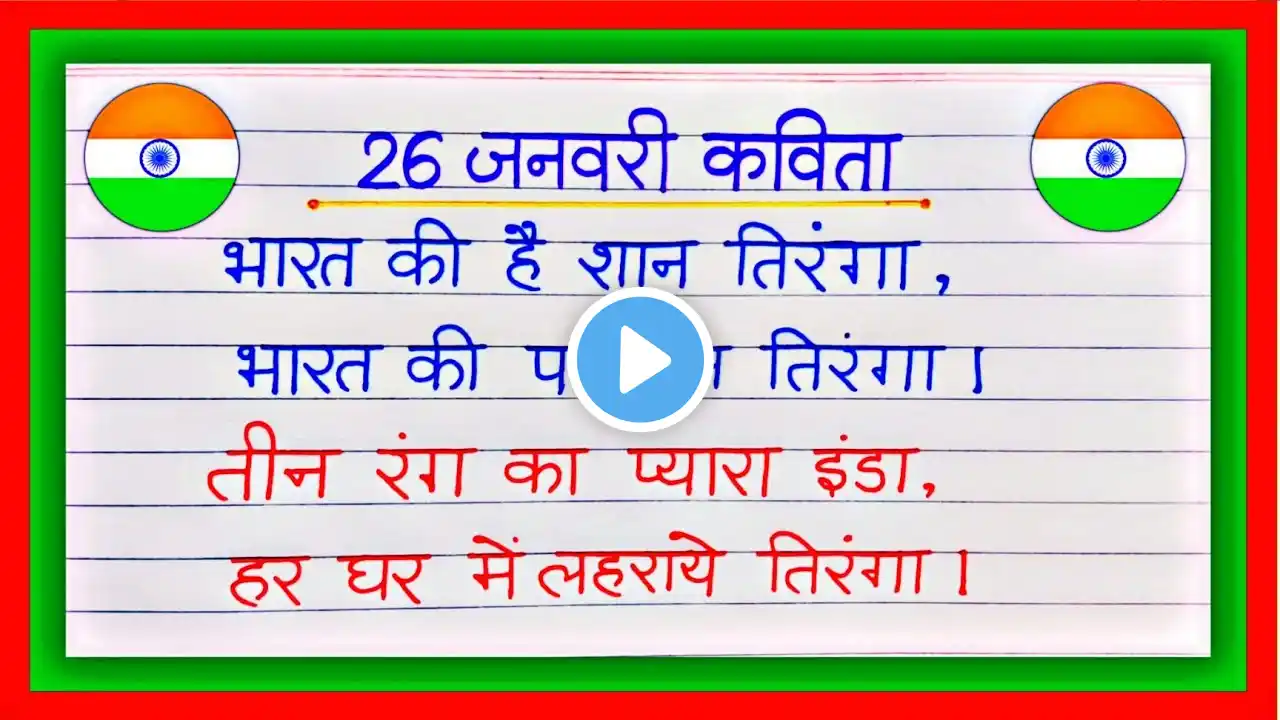 26 जनवरी कविता
भारत की है शान तिरंगा,
भारत की तिरंगा।
तीन रंग का प्यारा इंडा,
हर घर में लहराये तिरंगा।